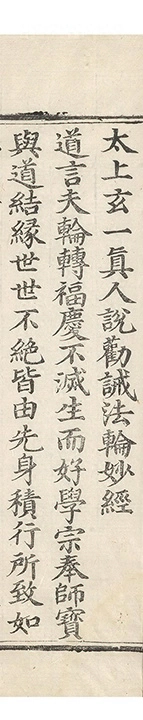 太上玄一眞人說勸誡法輪妙經
道言夫輪轉福慶不滅生而好學宗奉師寶
與道結緣世世不絕皆由先身積行所致如